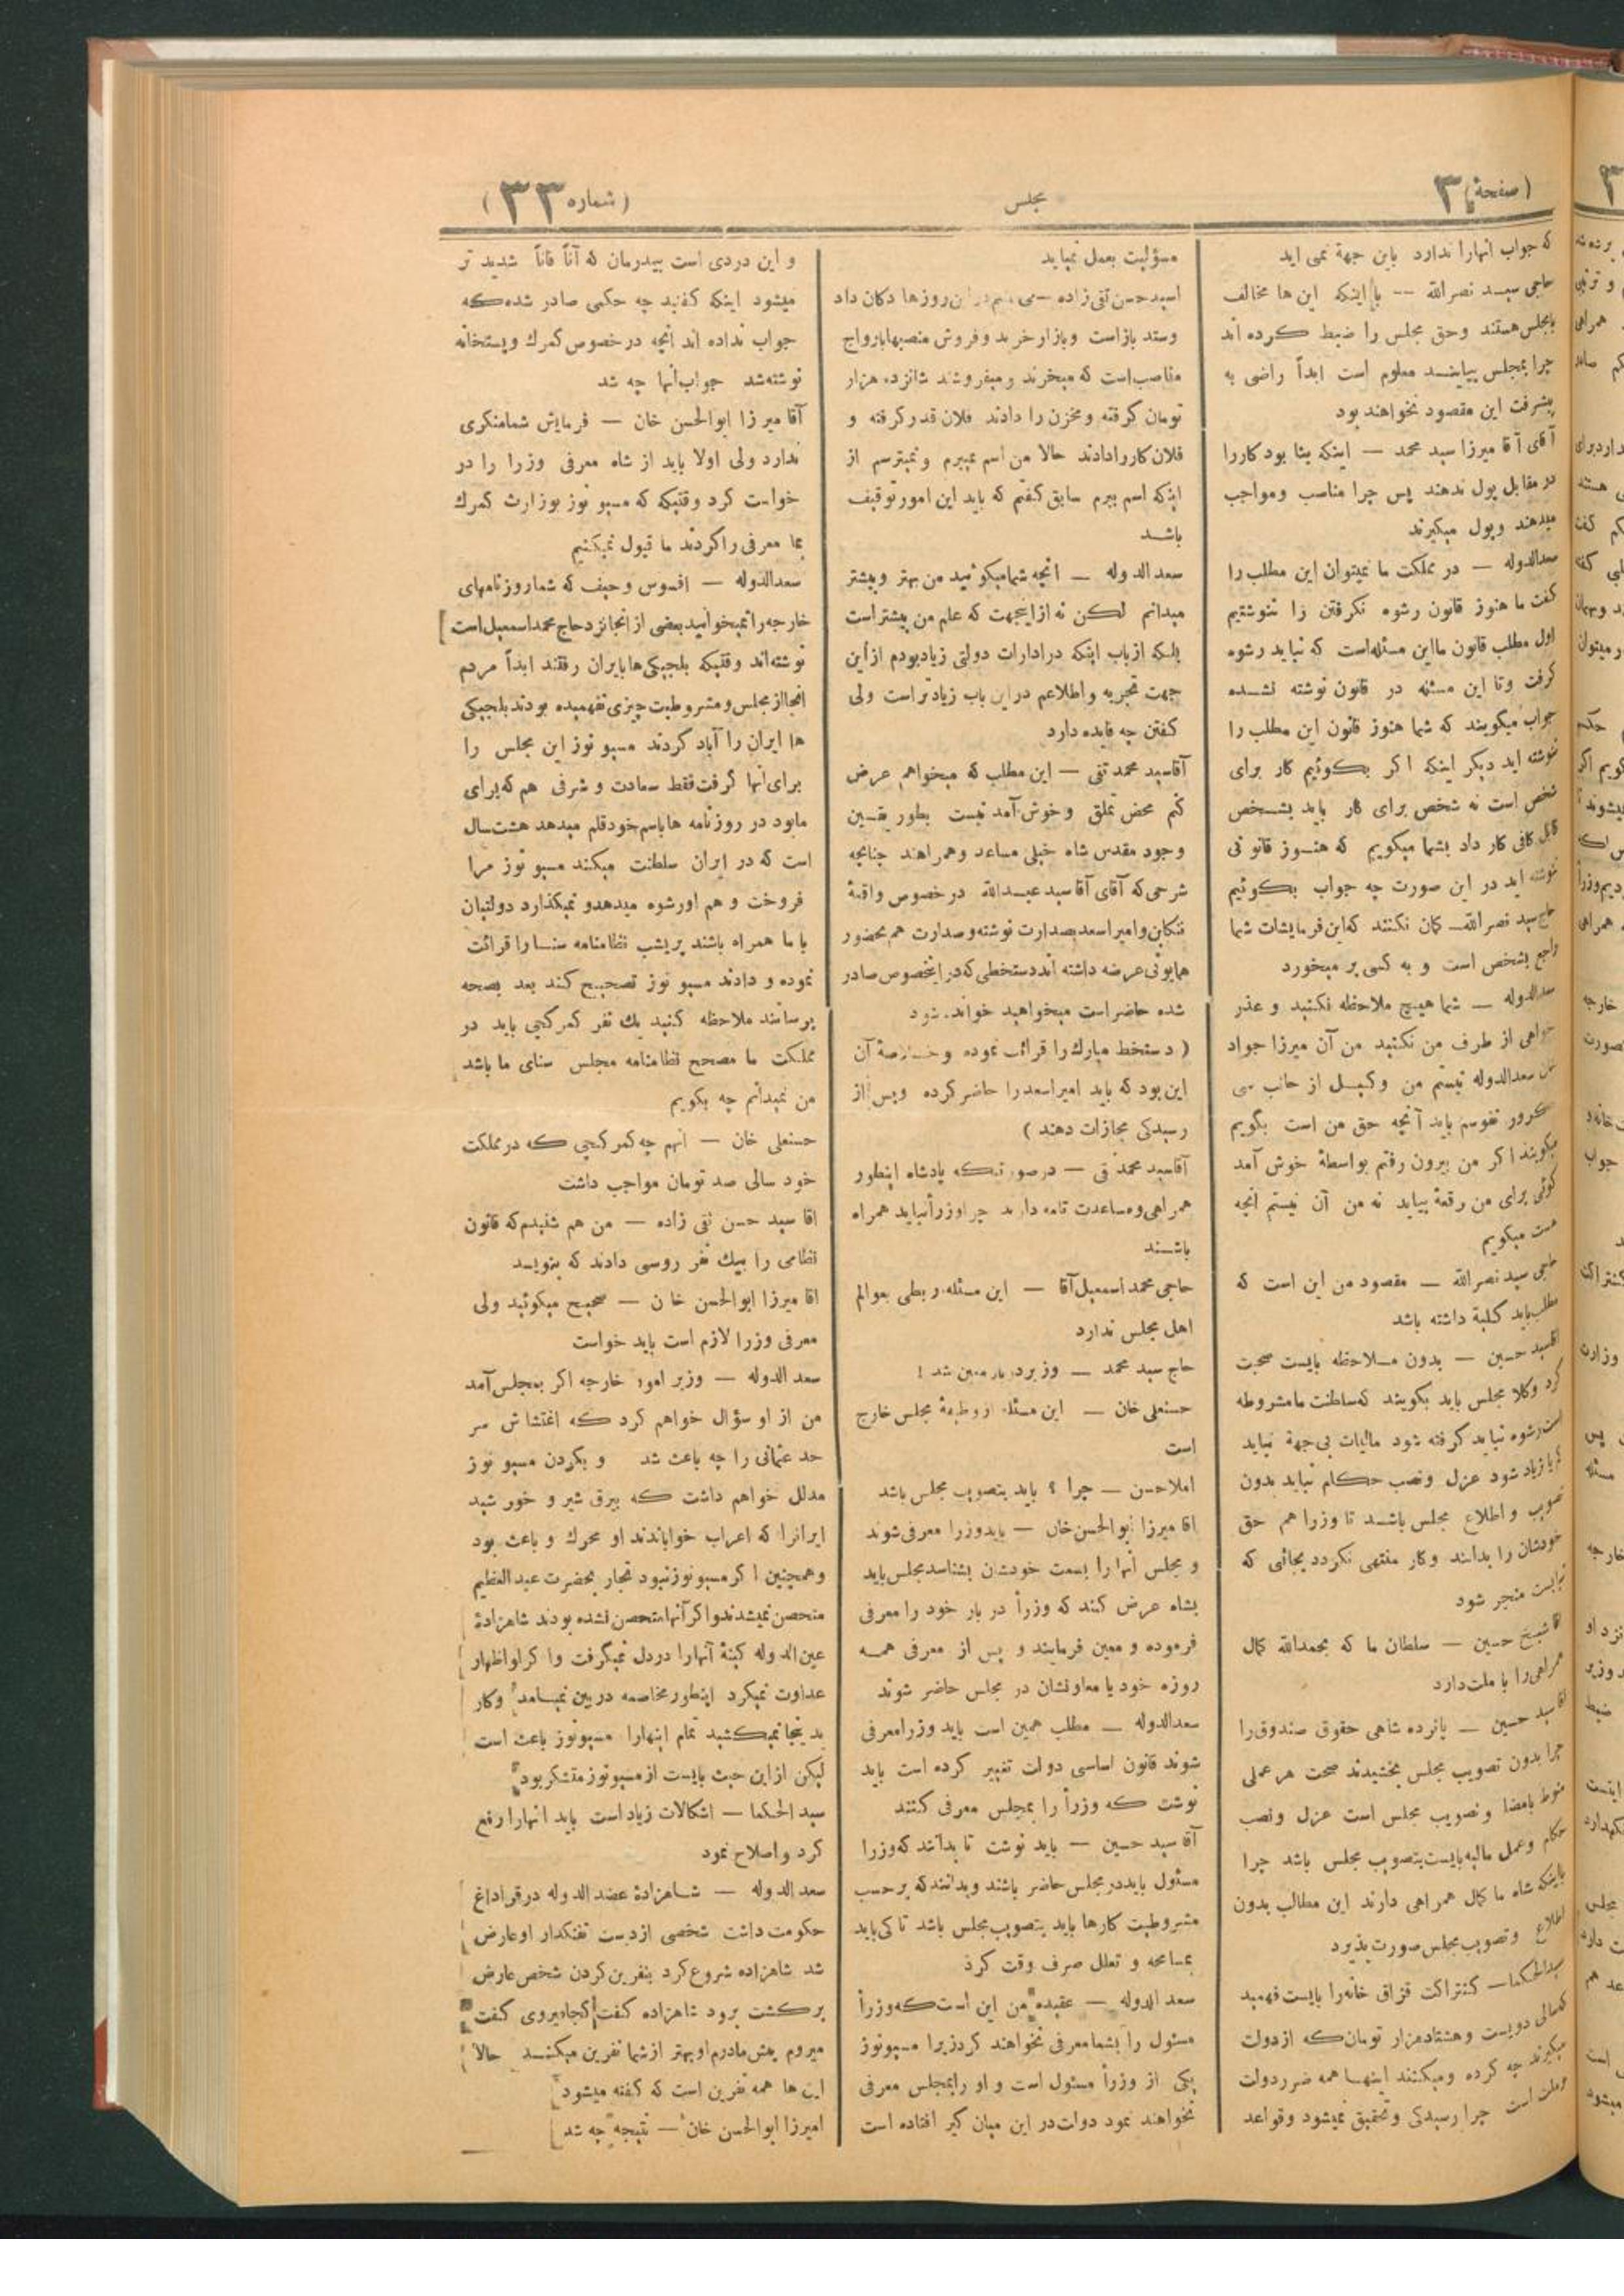 (صفحهٔ) ۳
مجلس
(شماره ۳۳)
که جواب انهارا ندارد باین جهة نمی اید
حاجی سید نصرالله -- با اینکه این ها مخالف
بامجلس هستند وحق مجلس را ضبط کرده اند
چرا بمجلس بیایند معلوم است ابداً راضی به
پیشرفت این مقصود نخواهند بود
آقای آقا میرزا سید محمد — اینکه بنا بود کاررا
در مقابل پول ندهند پس چرا مناصب ومواجب
میدهند وپول میکیرند
سعدالدوله — در مملکت ما نمیتوان این مطلب را
کفت ما هنوز قانون رشوه نکرفتن را ننوشتیم
اول مطلب قانون مااین مسئله است که نباید رشوه
کرفت وتا این مسئله در قانون نوشته نشده
جواب میگویند که شما هنوز قانون این مطلب را
ننوشته اید دیکر اینکه اکر بکوئیم کار برای
شخص است نه شخص برای کار باید بشخص
قابل کافی کار داد بشما میکویم که هنوز قانونی
ننوشته اید در این صورت چه جواب بکوئیم
حاج سید نصرالله— کمان نکنند که این فرمایشات شما
راجع بشخص است و به کسی بر میخورد
سعدالدوله — شما هیچ ملاحظه نکنید و عذر
خواهی از طرف من نکنید من آن میرزا جواد
خان سعدالدوله نیستم من وکیل از جانب سی
کرور نفوسم باید آنچه حق من است بگویم
میکویند اکر من بیرون رفتم بواسطهٔ خوش آمد
کوئی برای من رقعهٔ بیاید نه من آن نیستم انچه
هست میکویم
حاجی سید نصرالله — مقصود من این است که
مطلب باید کلیة داشته باشد
اقاسید حسین — بدون ملاحظه بایست صحبت
کرد وکلا مجلس باید بکویند که سلطنت مامشروطه
است رشوه نباید کرفته شود مالیات بی جهة نباید
کم یا زیاد شود عزل ونصب حکام نباید بدون
تصویب و اطلاع مجلس باشد تا وزرا هم حق
خودشان را بدانند وکار منتهی نکردد بجائی که
نبایست منجر شود
اقا شیخ حسین — سلطان ما که بحمدالله کمال
همراهی را با ملت دارد
اقا سید حسین — پانزده شاهی حقوق صندوق را
چرا بدون تصویب مجلس بخشیدند صحت هر عملی
منوط بامضا وتصویب مجلس است عزل ونصب
حکام وعمل مالیه بایست بتصویب مجلس باشد چرا
بااینکه شاه ما کمال همراهی دارند این مطالب بدون
اطلاع وتصویب مجلس صورت پذیرد
سیدالحکما— کنتراکت قزاق خانه را بایست فهمید
که سالی دویست وهشتاد هزار تومان که از دولت
میکیرند چه کرده ومیکنند اینها همه ضرر دولت
وملت است چرا رسیدکی وتحقیق نمیشود وقواعد
مسؤلیت بعمل نمیاید
اسید حسن تقی زاده — در این روزها دکان داد
وستد باز است وبازار خرید وفروش منصبها با رواج
مناصب است که میخرند ومیفروشند شانزده هزار
تومان کرفته ومخزن را دادند فلان قدر کرفته و
فلان کاررادادند حالا من اسم نمیبرم ونمیترسم از
اینکه اسم ببرم سابق کفتم که باید این امور توقیف
باشد
سعد الدوله — انچه شما میکوئید من بهتر وبیشتر
میدانم لکن نه از اینجهت که علم من بیشتر است
بلکه از باب اینکه در ادارات دولتی زیاد بودم از این
جهت تجربه واطلاعم در این باب زیادتر است ولی
کفتن چه فایده دارد
آقاسید محمد تقی — این مطلب که میخواهم عرض
کنم محض تملق وخوش آمد نیست بطور یقین
وجود مقدس شاه خیلی مساعد وهمراهند چنانچه
شرحی که آقای آقا سید عبدالله در خصوص واقعهٔ
تنکابن وامیر اسعد بصدارت نوشته وصدارت هم بحضور
همایونی عرضه داشته اند دستخطی که در اینخصوص صادر
شده حاضر است میخواهید خوانده شود
( دستخط مبارک را قرائت نموده وخلاصهٔ آن
این بود که باید امیر اسعد را حاضر کرده وپس از
رسیدکی مجازات دهند )
آقاسید محمد تقی — در صورتیکه پادشاه اینطور
همراهی ومساعدت تامه دارند چرا وزرأ نباید همراه
باشند
حاجی محمد اسمعیل آقا — این مسئله ربطی بعوالم
اهل مجلس ندارد
حاج سید محمد — وزیر دربار معین شد !
حسنعلی خان — این مسئله از وظیفهٔ مجلس خارج
است
املاحسن — چرا ؟ باید بتصویب مجلس باشد
اقا میرزا ابوالحسن خان — باید وزرا معرفی شوند
و مجلس انها را بسمت خودشان بشناسد مجلس باید
بشاه عرض کند که وزرأ در بار خود را معرفی
فرموده و معین فرمایند و پس از معرفی همه
روزه خود یا معاونشان در مجلس حاضر شوند
سعدالدوله — مطلب همین است باید وزرا معرفی
شوند قانون اساسی دولت تغییر کرده است باید
نوشت که وزرأ را بمجلس معرفی کنند
آقا سید حسین — باید نوشت تا بدانند که وزرا
مسئول باید در مجلس حاضر باشند وبدانند که بر حسب
مشروطیت کارها باید بتصویب مجلس باشد تا کی باید
بمسامحه و تعلل صرف وقت کرد
سعد الدوله — عقیده من این است که وزرأ
مسئول را بشما معرفی نخواهند کرد زیرا مسیو نوز
یکی از وزرأ مسئول است و او را بمجلس معرفی
نخواهند نمود دولت در این میان کیر افتاده است
و این دردی است بیدرمان که آناً فاناً شدید تر
میشود اینکه کفتید چه حکمی صادر شده که
جواب نداده اند انچه در خصوص کمرک وپستخانه
نوشته شد جواب انها چه شد
آقا میرزا ابوالحسن خان — فرمایش شما منکری
ندارد ولی اولا باید از شاه معرفی وزرا را در
خواست کرد وقتیکه که مسیو نوز بوزارت کمرک
بما معرفی را کردند ما قبول نمیکنیم
سعدالدوله — افسوس وحیف که شما روزنامهای
خارجه را نمیخوانید بعضی از انجا نزد حاج محمد اسمعیل است
نوشته اند وقتیکه بلجیکی ها بایران رفتند ابداً مردم
انجا از مجلس و مشروطیت چیزی نفهمیده بودند بلجیکی
ها ایران را آباد کردند مسیو نوز این مجلس را
برای انها گرفت فقط سعادت و شرفی هم که برای
مابود در روزنامه ها باسم خود قلم میدهد هشت سال
است که در ایران سلطنت میکند مسیو نوز مرا
فروخت و هم او رشوه میدهد و نمیکذارد دولتیان
با ما همراه باشند پریشب نظامنامه سنا را قرائت
نموده و دادند مسیو نوز تصحیح کند بعد بصحه
برسانند ملاحظه کنید یک نفر کمرکچی باید در
مملکت ما مصحح نظامنامه مجلس سنای ما باشد
من نمیدانم چه بکویم
حسنعلی خان — انهم چه کمرکچی که در مملکت
خود سالی صد تومان مواجب داشت
اقا سید حسن تقی زاده — من هم شنیدم که قانون
نظامی را بیک نفر روسی دادند که بنویسد
اقا میرزا ابوالحسن خان — صحیح میکوئید ولی
معرفی وزرا لازم است باید خواست
سعد الدوله — وزیر امور خارجه اکر بمجلس آمد
من از او سؤال خواهم کرد که اغتشاش سر
حد عثمانی را چه باعث شد و بکردن مسیو نوز
مدلل خواهم داشت که بیرق شیر و خور شید
ایرانرا که اعراب خواباندند او محرک و باعث بود
وهمچنین اکر مسیو نوز نبود تجار بحضرت عبدالعظیم
متحصن نمیشدند و اکر آنها متحصن نشده بودند شاهزادهٔ
عین الدوله کینهٔ آنهارا در دل نمیگرفت واکر او اظهار
عداوت نمیکرد اینطور مخاصمه در بین نمیامد وکار
بدینجا نمیکشید تمام اینهارا مسیو نوز باعث است
لیکن از این حیث بایست از مسیو نوز متشکر بود
سید الحکما — اشکالات زیاد است باید انهارا رفع
کرد و اصلاح نمود
سعد الدوله — شاهزادهٔ عضد الدوله در قراداغ
حکومت داشت شخصی از دست تفنکدار او عارض
شد شاهزاده شروع کرد بنفرین کردن شخص عارض
برکشت برود شاهزاده کفت کجا میروی کفت
میروم پیش مادرم او بهتر از شما نفرین میکند حالا
این ها همه نفرین است که کفته میشود
امیرزا ابوالحسن خان — نتیجه چه شد